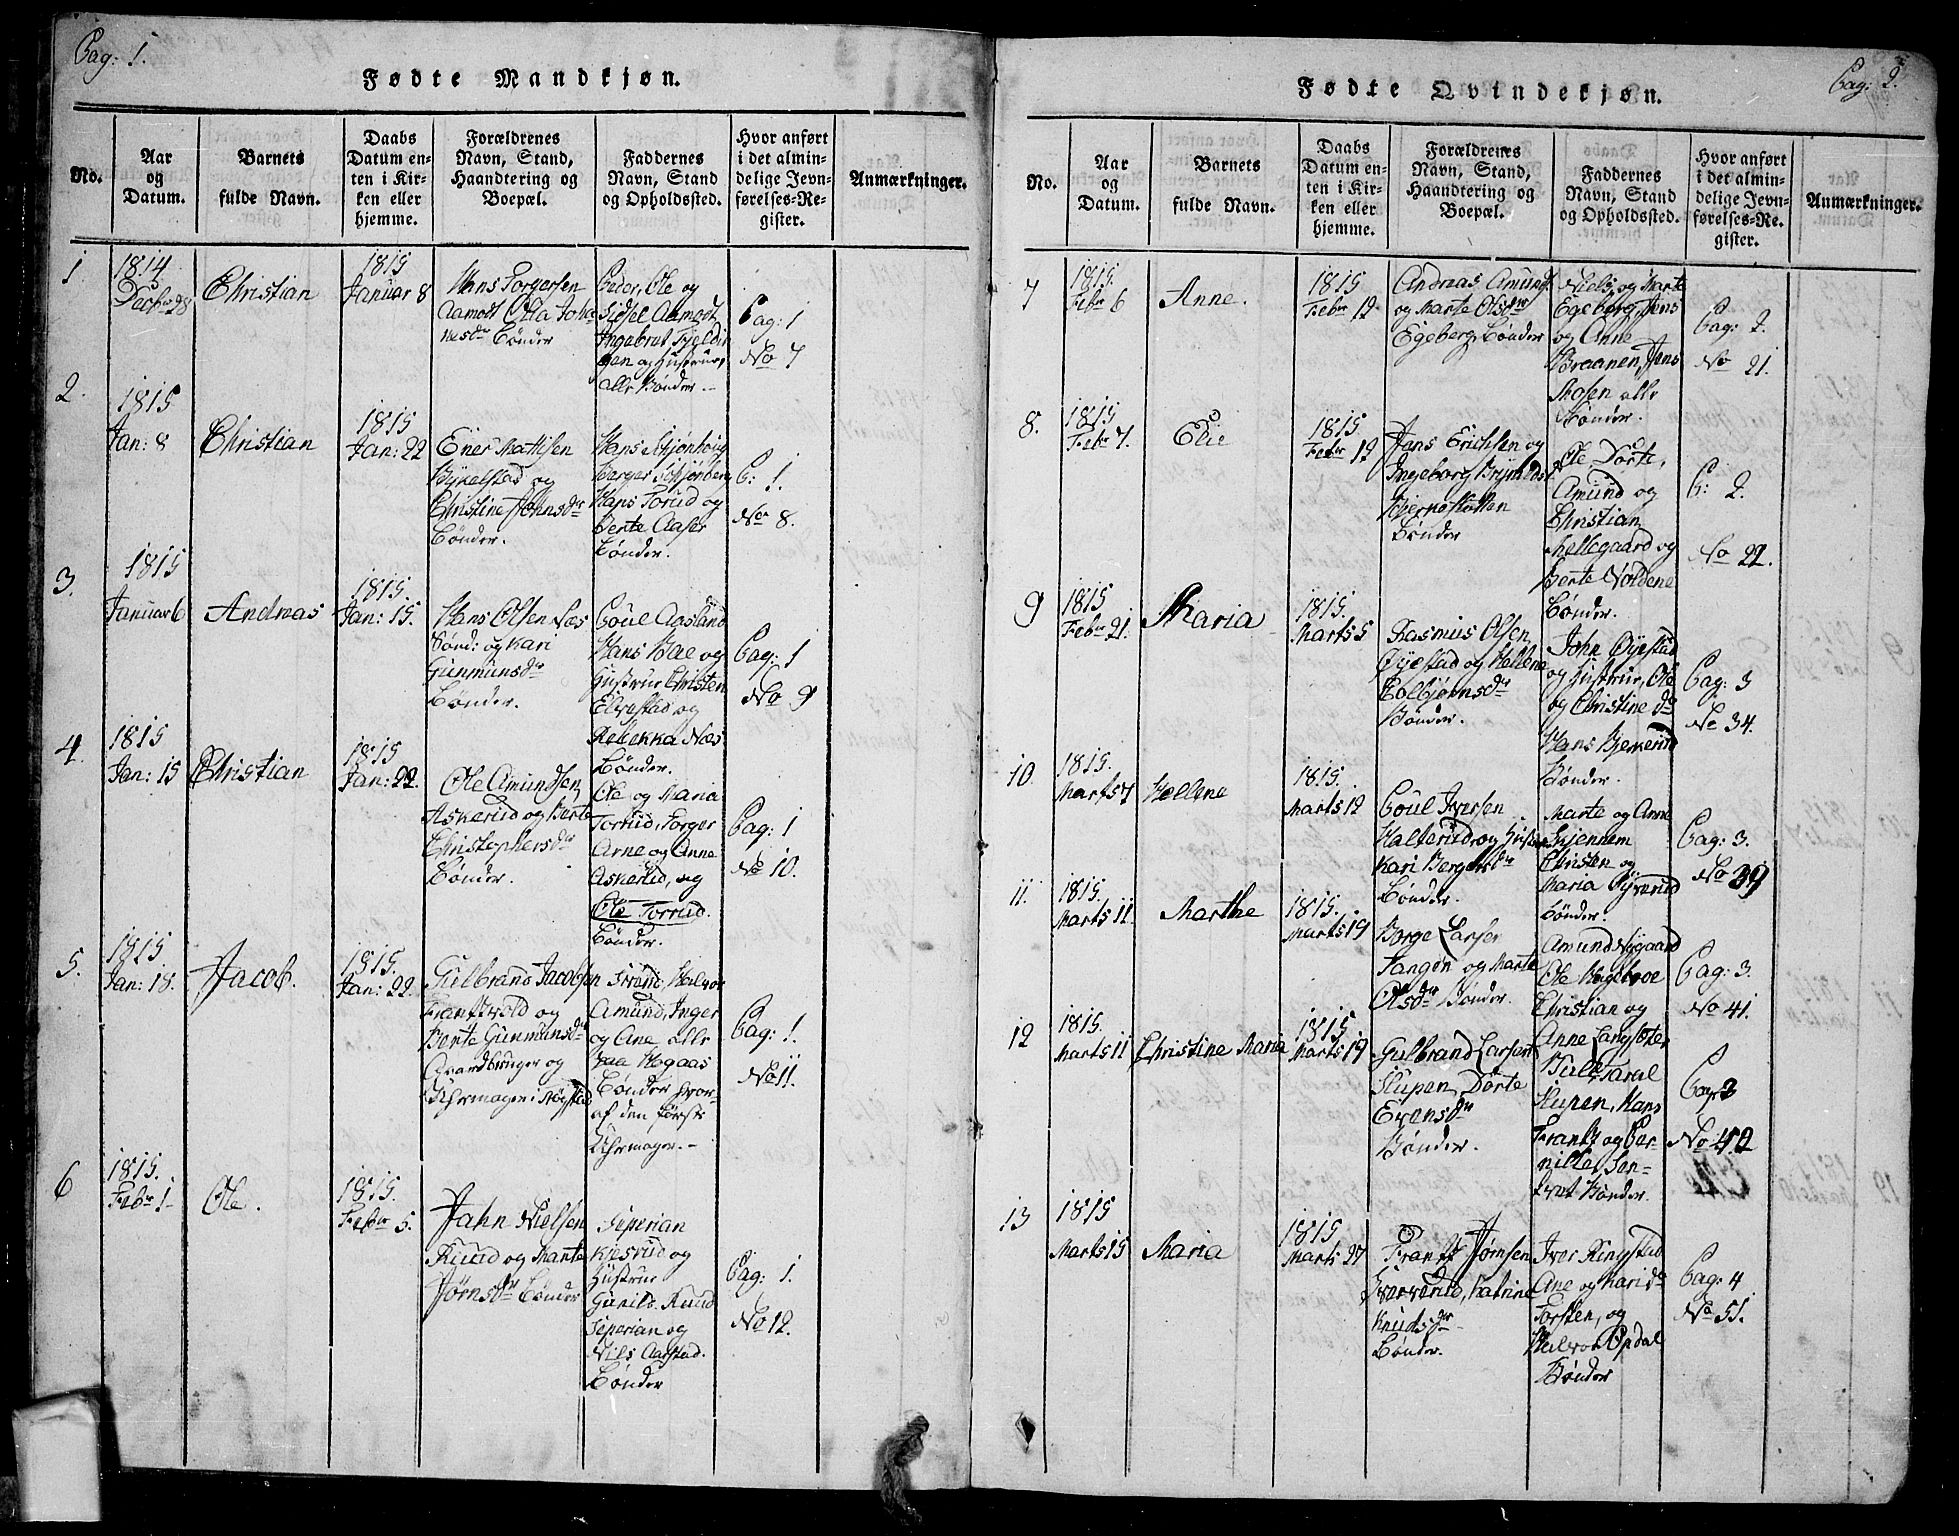 Pag: 1.
Fødte Mandkjøn.
No.
Aar
og
Datum.
Barnets
fulde Navn.
Daabs
Datum en-
ten i Kir-
ken eller
hjemme.
Forældrenes
Navn, Stand,
Haandtering og
Boepæl.
Faddernes
Navn, Stand
og Opholdssted.
Hvor anført
i det almin-
delige Jevn-
førelses-Re-
gister.
Anmærkninger.
1
1814
Decbr 28
Christian
1815
Januar 8
Hans Torgersen
Aamodt Olia Joha
nesdr Bønder
Peder, Ole og
Sidsel Aamodt,
Ingebret Fjeldin
gen og Hustrue,
alle Bønder.-
Pag: 1
No 7
2.
1815
Jan: 8
Christian
1815
Jan: 22
Ener Mathisen
Bykelstad og
Christine Johnsdr
Bønder.
Hans Schjønhoug
Berger Schjønberg
Hans Torud og
Berte Aaser
Bønder.
P: 1.
No 8.
3.
1815
Januar 6
Andreas
1815.
Jan: 15.
Hans Olsen Næs
Sønd: og Kari
Gunmunsdr
Bønder.
Poul Aasland
Hans Bae og
Hustrue Christen
Elvestad og
Rebekka Næs
Bønder.
Pag: 1
No 9
4.
1815
Jan: 15
Christian
1815
Jan: 22.
Ole Amundsen
Askerud og Berte
Christophersdr
Bønder.
Ole og Maria
Torrud, Torger
Arne og Anne
Askerud, og
Ole Torrud.
Bønder.
Pag: 1
No 10.
5.
1815.
Jan: 18.
Jacob.
1815.
Jan: 22.
Gulbrand Jacobsen
Frantsvold og
Berte Gunmunsdr
Gaardbruger og
Uhrmager i
Trond, Halvor
Amund, Inger
og Ane alle
paa Hogaas
Bønder hvor-
af den første
Uhrmager.-
Pag: 1.
No 11.
6
1815.
Febr 1.
Ole.
1815.
Febr 5.
Jahn Nielsen
Ruud og Marte
Jørnsdr Bønder
Siperian
Kjesrud og
Hustrue
Gunild Ruud
Siperian og
Nils Aarstad.
Bønder
Pag: 1.
No 12.
Pag: 2.
Fødte Qvindekjøn.
No.
Aar
og
Datum.
Barnets
fulde Navn.
Daabs
Datum en-
ten i Kir-
ken eller
hjemme.
Forældrenes
Navn, Stand,
Haandtering og
Boepæl.
Faddernes
Navn, Stand
og Opholdssted.
Hvor anført
i det almin-
delige Jevn-
førelses-Re-
gister.
Anmærkninger.
7
1815.
Febr 6
Anne.
1815
Febr 12
Andreas Amunds
og Marte Olsdr
Egeberg, Bønder
Niels, og Marte
Egeberg, Jens
og Anne
Braanen, Jens
Mosen alle
Bønder.
Pag: 2.
No 21.
8.
1815.
Febr 7.
Elie
1815
Febr 12
Jens Erichsen og
Ingeborg Brynilds
Bønder
Ole, Dorte,
Amund og
Christian
Mellegaard og
Berte Voldene
Bønder.
P: 2.
No 22.
9
1815
Febr 21.
Maria
1815.
Marts 5
Rasmus Olsen
Øyestad og Hellene
Colbjørnsdr
Bønder.
John Øyestad
og Hustrue, Ole
og Christine do
Hans Bjerkerud
Bønder.
Pag: 3
No 34.
10.
1815.
Marts 7
Hellene
1815.
Marts 12
Poul Iversen
Halterud og Hustrue
Kari Bergersdr
Bønder.
Marte og Anne
Skjennem
Christen og
Maria Dyrerud
Bønder.
Pag: 3.
No 39
11.
1815.
Marts 11
Marthe
1815.
Marts 19
Borge Larsen
Tangen og Marte
Olsdr Bønder.
Amund Nygaard
Ole Hagebroe
Christian og
Anne Langsæter
Pag: 3.
No 41.
12
1815.
Marts 11
Christine Maria
1815
Marts 19
Gulbrand Larsen
Slupen, Dorte
Evensdr
Bønder.
Slupen, Hans
Frantz og Per-
nille, Sen-
Bønder.
Pag: 3
No 42
13
1815
Marts 15
Maria
1815
Marts 27
Frantz Jørnsen
Katrine
Knudsdr
Bønder.
Iver Ringstad
Ane og Kari do
Torsten, og
Halvor Opdal
Bønder
Pag: 4
No 51.